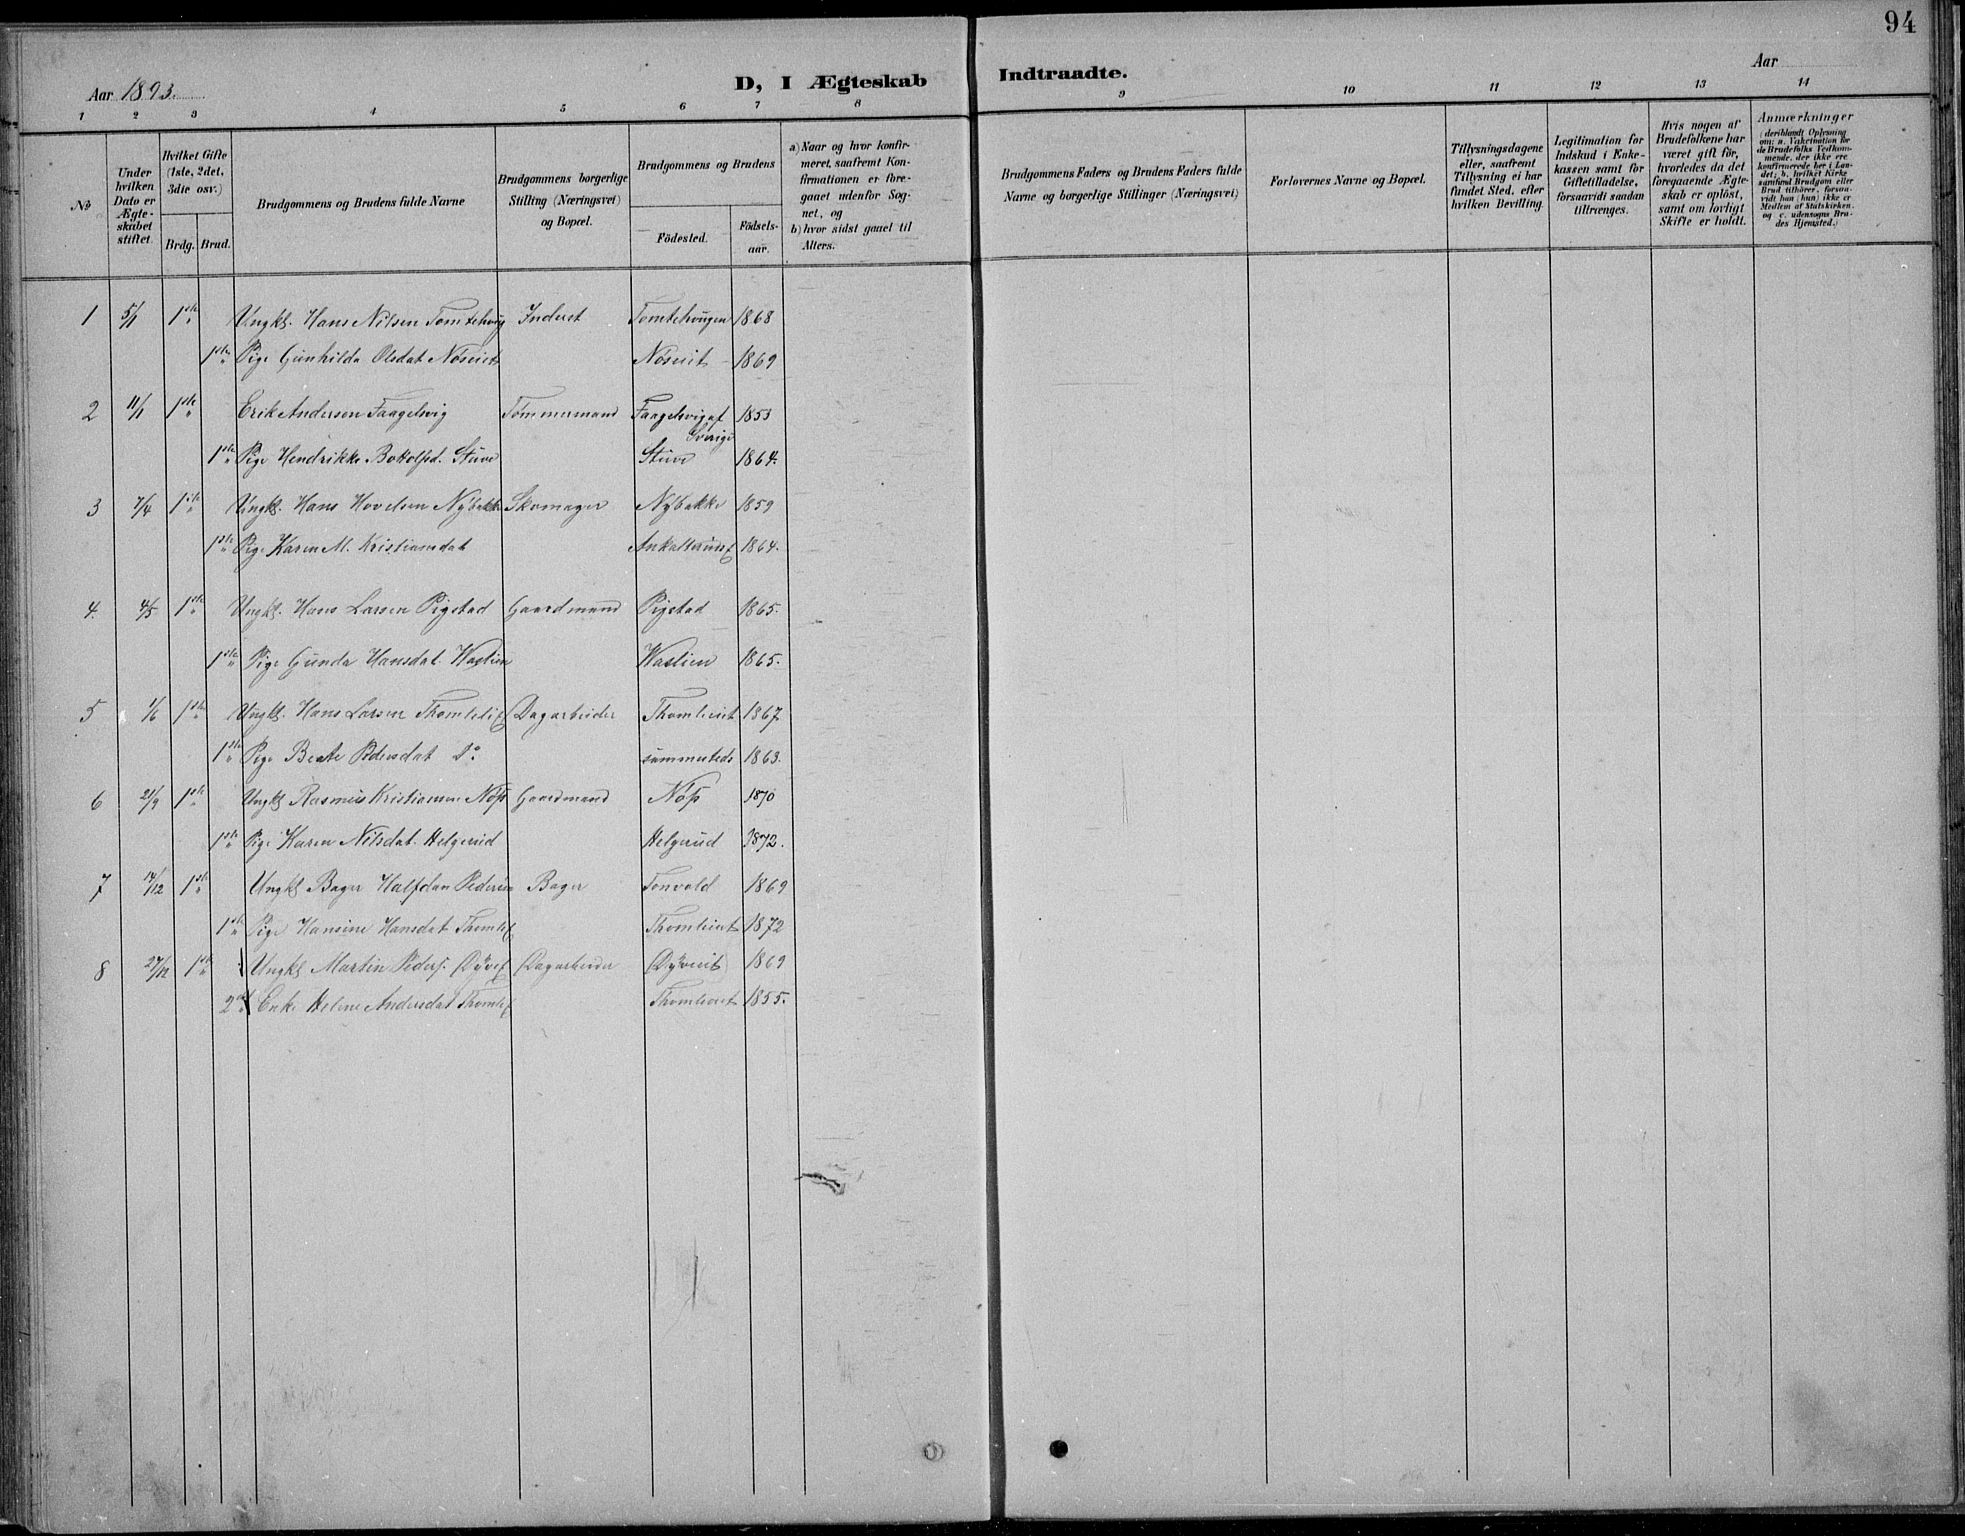 94
Aar 1893.
D, I Ægteskab Indtraadte.
Aar
1 2 3 4 5 6 7 8 9 10 11 12 13 14
No
Under hvilken Dato er Ægteskabet stiftet.
Hvilket Gifte (1ste, 2det, 3die osv.)
Brdg. Brud.
Brudgommens og Brudens fulde Navne
Brudgommens borgerlige Stilling (Næringsvei) og Bopæl.
Brudgommens og Brudens
Födested. Födselsaar.
a) Naar og hvor konfirmeret, saafremt Konfirmationen er foregaaet udenfor Sognet, og
b) hvor sidst gaaet til Alters.
Brudgommens Faders og Brudens Faders fulde Navne og borgerlige Stillinger (Næringsvei)
Forlovernes Navne og Bopæl.
Tillysningsdagene eller, saafremt Tillysning ei har fundet Sted, efter hvilken Bevilling.
Legitimation for Indskud i Enkekassen samt for Giftetilladelse, forsaavidt saadan tiltrænges.
Hvis nogen af Brudefolkene har været gift för, hvorledes da det foregaaende Ægteskab er oplöst, samt om lovligt Skifte er holdt.
Anmærkninger (deriblandt Oplysning om: a. Vakcination for de Brudefolks Vedkommende, der ikke ere konfirmerede her i Landet; b. hvilket Kirkesamfund Brudgom eller Brud tilhører, forsaavidt han (hun) ikke er Medlem af Statskirken, og c. udensogns Brudes Hjemsted.)
1 5/1 1ste Ungkl. Hans Nilsen Tomtehoug Inderst Tomtehougen 1868
1ste Pige Gunhilda Olsdat Nøseiet Nøseiet 1869
2 11/1 1ste Erik Andersen Faagelsvig Tømmermand Faagelsvig af Sverige 1853
1ste Pige Hendrikke Botolfsd. Stuve Stuve 1864.
3 7/4 1ste Ungkl. Hans Hovelsen Nybakke Skomager Nybakke 1859
1ste Pige Karen M. Kristiansdat 1864.
4. 4/5 1ste Ungkl. Hans Larsen Pigstad Gaardmand Pigstad 1865.
1ste Pige Gunda Hansdat. Waslien Waslien 1865.
5 1/6 1ste Ungkl. Hans Larsen Dagarbeider Thomleiet 1867
1ste Pige Beate Pedersdat Do. sammesteds 1863.
6 21/9 1ste Ungkl Rasmus Kristiansen Nøss Gaardmand Nøss 1870
1ste Pige Karen Nilsdat. Helgerud Helgerud 1872.
7 14/12 1ste Ungkl Bager Halfdan Pedersen Bager Tonvold 1869
1ste Pige Hansine Hansdat Thomlei Thomleiet 1872
8 27/12 1ste Ungkl Martin Peders. Dyvei Dagarbeider Dyveiet 1869
2det Enke Helene Andersdat Thomlei Thomleiet 1855.